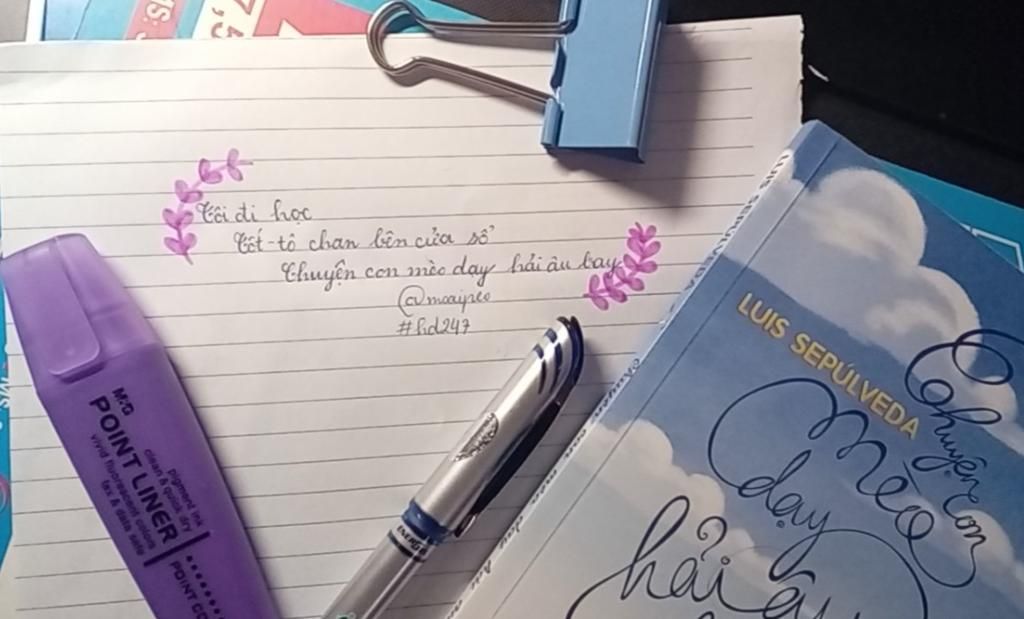 Tôi đi học
Tốt-tô chan bên cửa sổ
Chuyện con mèo dạy hải âu bay
@moaipeo
#hd247
M&G
POINT LINER
vivid fluorescent colors
fax & data safe
pigmented ink
clean & quick dry
POINT
ENERG
LUIS SEPÚLVEDA
Chuyện con
mèo
dạy
hải âu